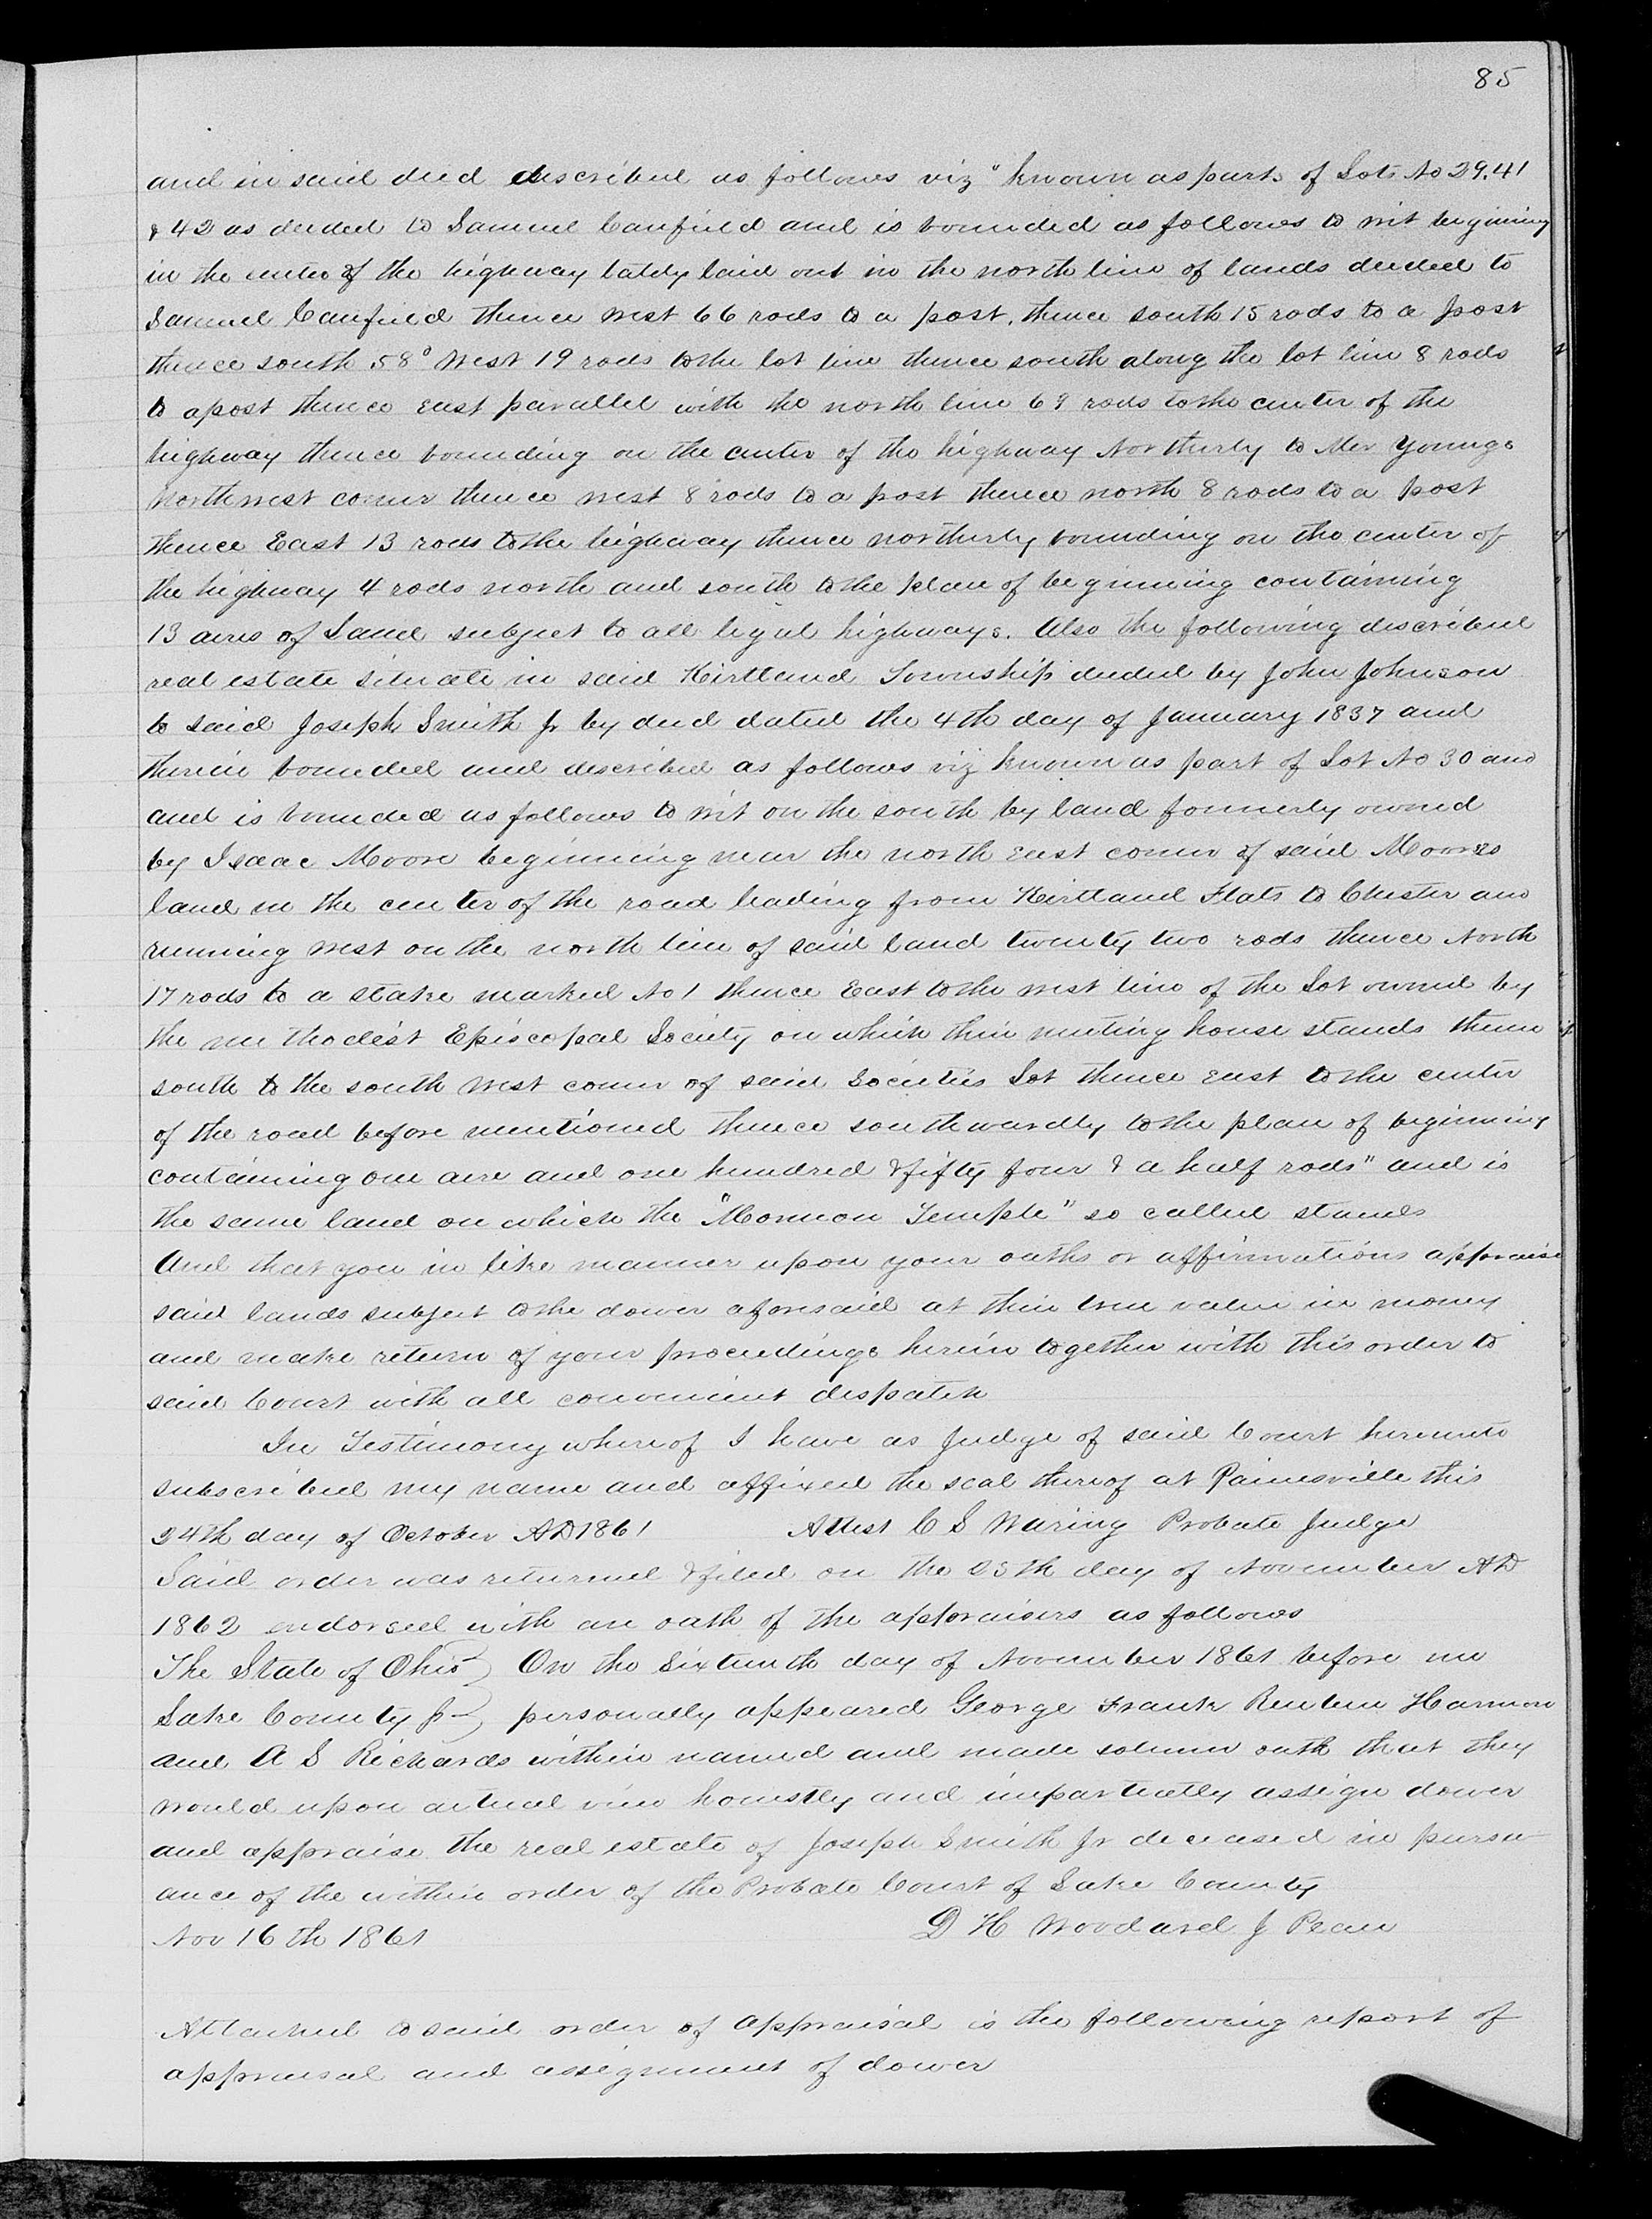 85
and in said deed described as follows viz "known as parts of Lots No 29, 41
& 42 as deeded to Samuel Canfield and is bounded as follows to wit begining
in the center of the highway lately laid out in the north line of lands deeded to
Samuel Canfield thence west 66 rods to a post, thence south 15 rods to a post
thence south 58° West 19 rods to the lot line thence south along the lot line 8 rods
to a post thence east parallel with the north line 69 rods to the center of the
highway thence bounding on the center of the highway Northerly to Mer Youngs
Northwest corner thence west 8 rods to a post thence north 8 rods to a post
thence East 13 rods to the highway thence northerly bounding on the center of
the highway 4 rods north and south to the place of beginning containing
13 acres of Land subject to all legal highways. Also the following described
real estate situate in said Kirtland Township deeded by John Johnson
to said Joseph Smith Jr by deed dated the 4th day of January 1837 and
therein bounded and described as follows viz known as part of Lot No 30 and
and is bounded as follows to wit on the south by land formerly owned
by Isaac Moore beginning near the north east corner of said Moores
land in the center of the road leading from Kirtland Flats to Chester and
running west on the north line of said land twenty two rods thence North
17 rods to a stake marked No 1 thence East to the west line of the Lot owned by
the methodist Episcopal Society on which their meeting house stands thence
south to the south west corner of said Societies Lot thence east to the center
of the road before mentioned thence southwardly to the place of beginning
containing one acre and one hundred & fifty four & a half rods" and is
the same land on which the "Mormon Temple" so called stands
And that you in like manner upon your oaths or affirmations appraise
said lands subject to the dower aforesaid at their true value in money
and make return of your proceedings herein together with this order to
said Court with all convenient dispatch
In Testimony whereof I have as Judge of said Court hereunto
subscribed my name and affixed the seal thereof at Painesville this
24th day of October AD 1861 Attest C S Waring Probate Judge
Said order was returned & filed on the 25th day of November AD
1862 endorsed with an oath of the appraisers as follows
The State of Ohio On the Sixteenth day of November 1861 before me
Lake County personally appeared George Frank Reuben Harmon
and A S Richards within named and made solemn oath that they
would upon actual view honestly and impartially assign dower
and appraise the real estate of Joseph Smith Jr deceased in pursu
ance of the within order of the Probate Court of Lake County
Nov 16th 1861 D H Woodard J Peace
Attached to said order of appraisal is the following report of
appraisal and assignment of dower